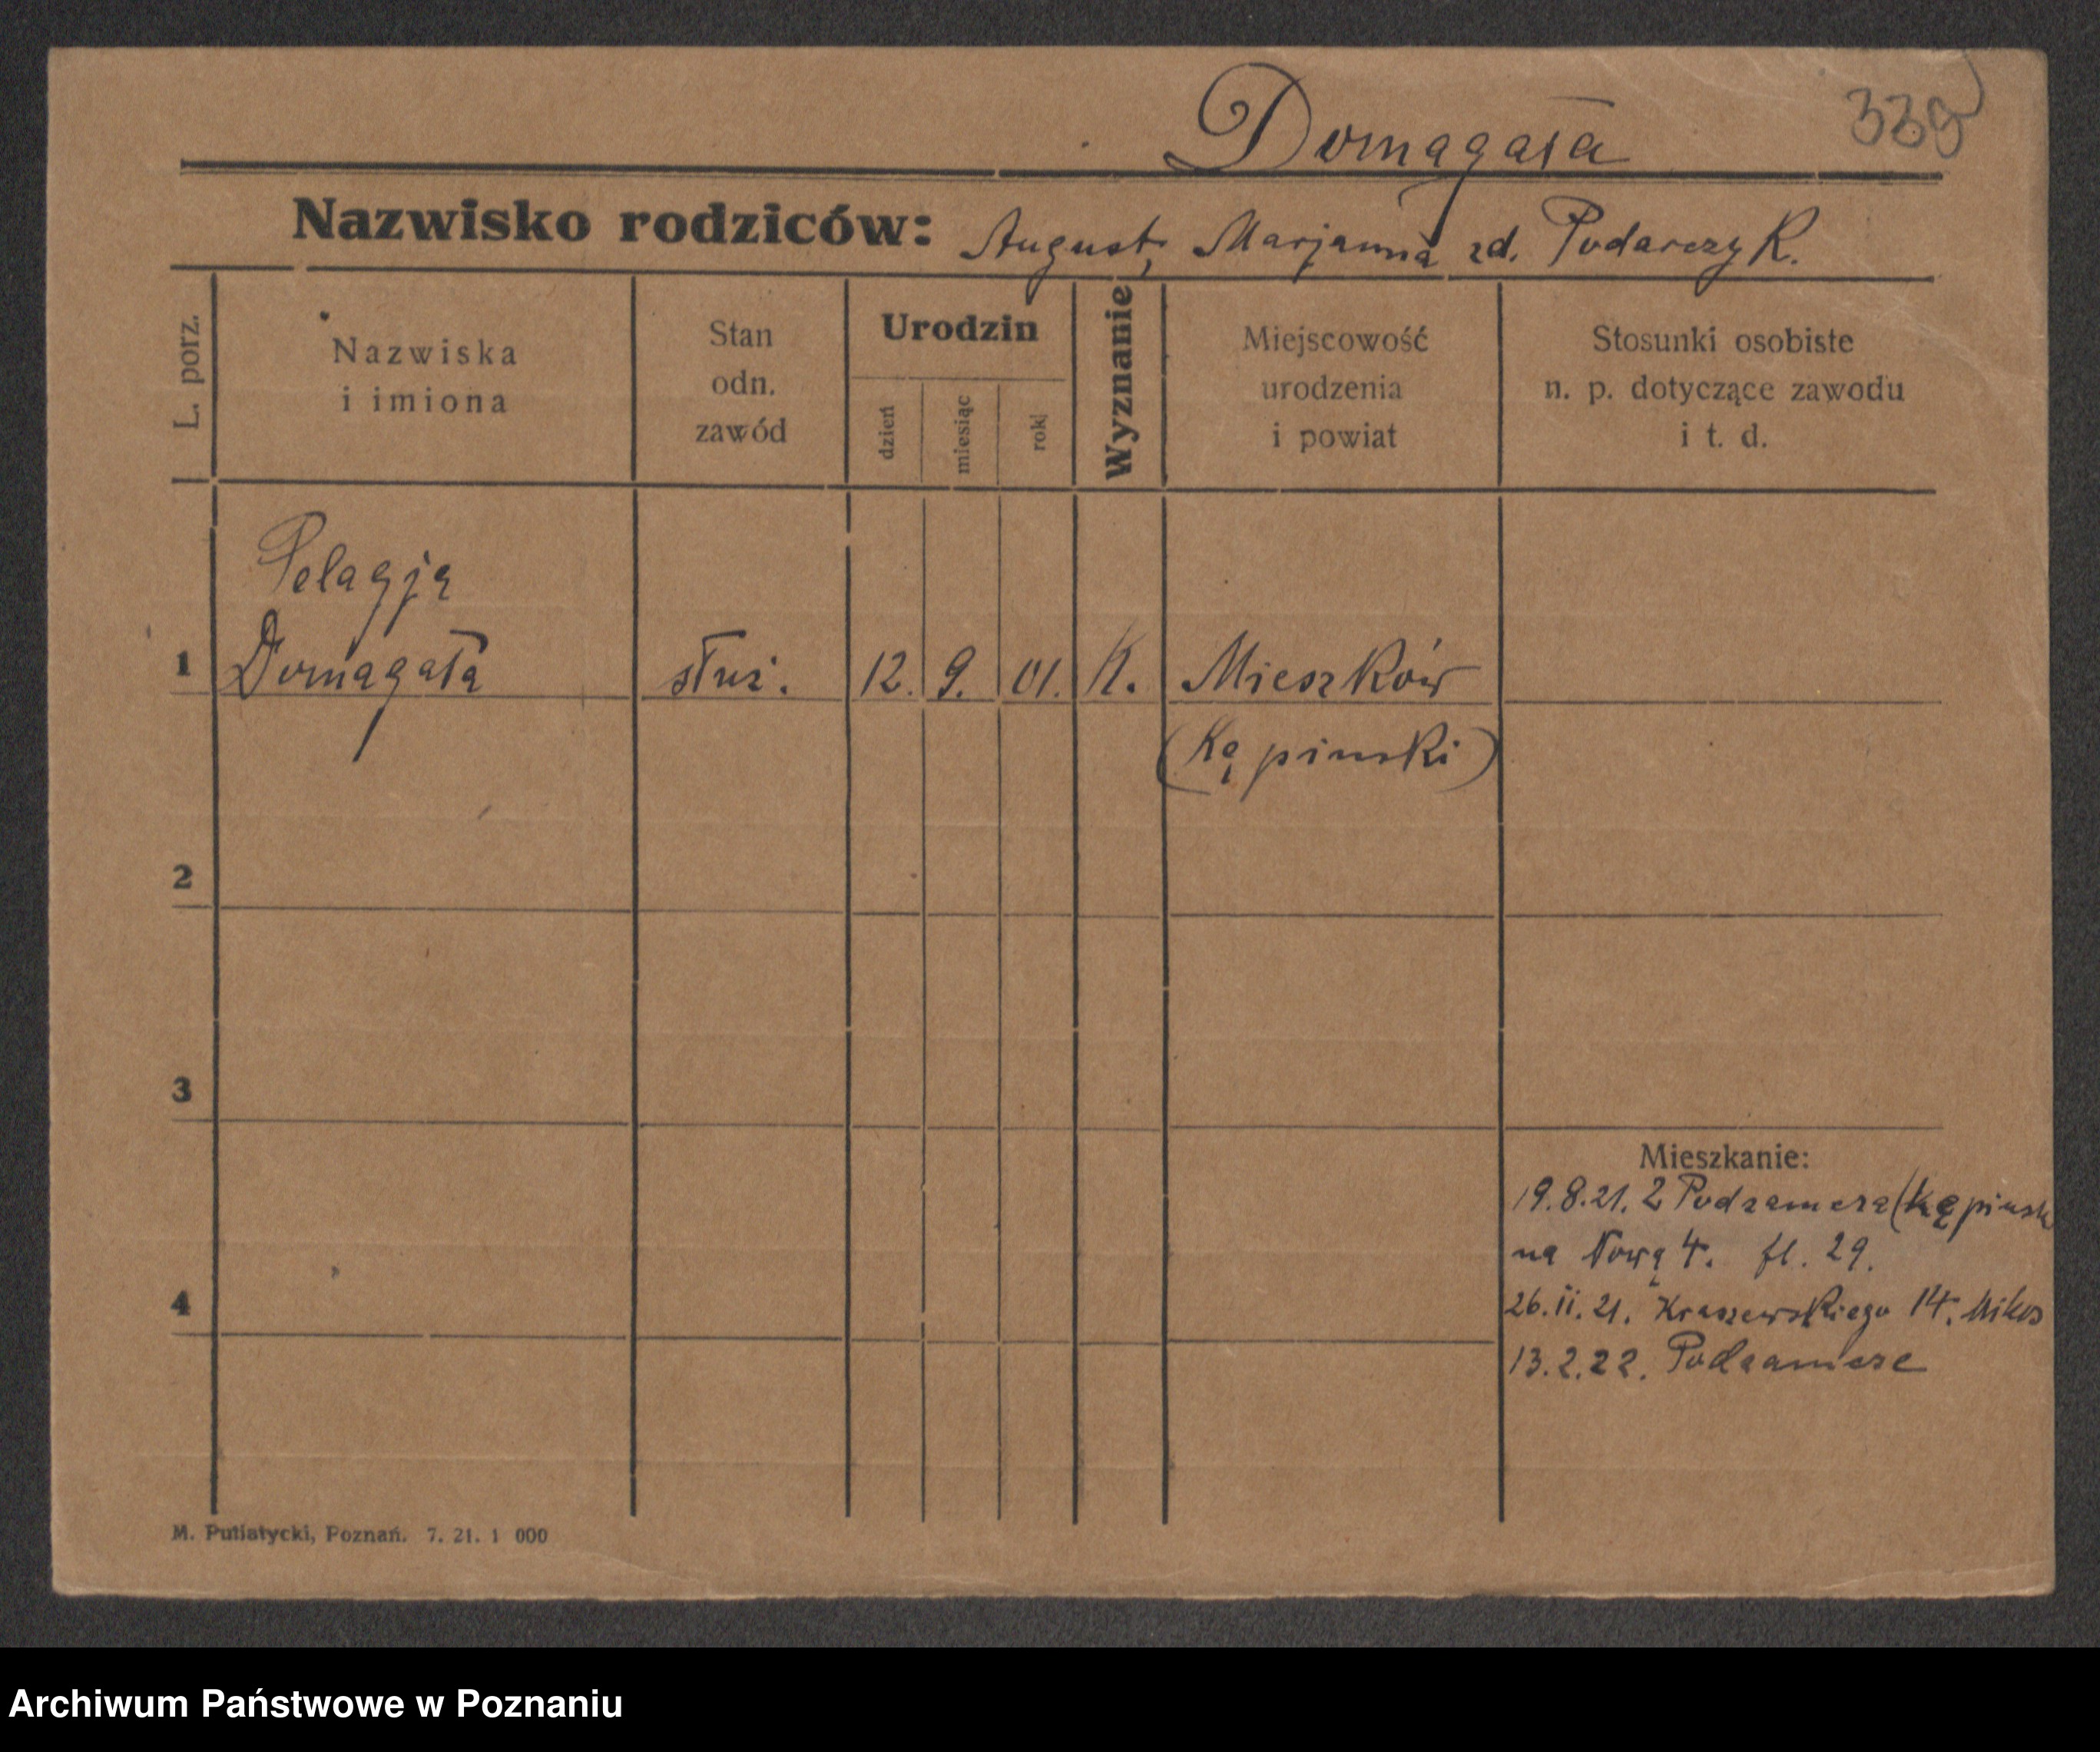 339
Domagała
Nazwisko rodziców: August, Marjanna zd. Podarczyk.
L. porz.
Nazwiska
i imiona
Stan
odn.
zawód
Urodzin
dzień
miesiąc
rok
Wyznanie
Miejscowość
urodzenia
i powiat
Stosunki osobiste
n. p. dotyczące zawodu
i t. d.
Pelagja
1 Domagała służ. 12. 9. 01. K. Mieszków
(Kępinski)
2
3
Mieszkanie:
19.8.21. z Podzamcza (kępinsk
na Nową 4. fl. 29.
26.11.21. Kraszewskiego 14.
4
13.2.22. Podzamcze
M. Putiatycki, Poznań. 7. 21. 1 000
Archiwum Państwowe w Poznaniu